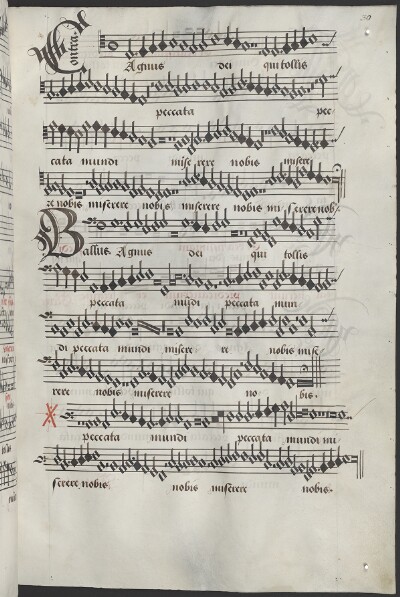 Contra
Agnus dei qui tollis
peccata pec
cata mundi miserere nobis misere
re nobis miserere nobis miserere nobis mi serere nob
Bassus Agnus dei qui tollis
peccata mundi peccata mun
di peccata mundi misere re nobis mise
rere nobis miserere no bis.
peccata mundi peccata mundi mi
serere nobis. nobis miserere nobis.